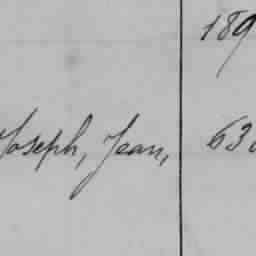 189
Joseph, Jean, 63